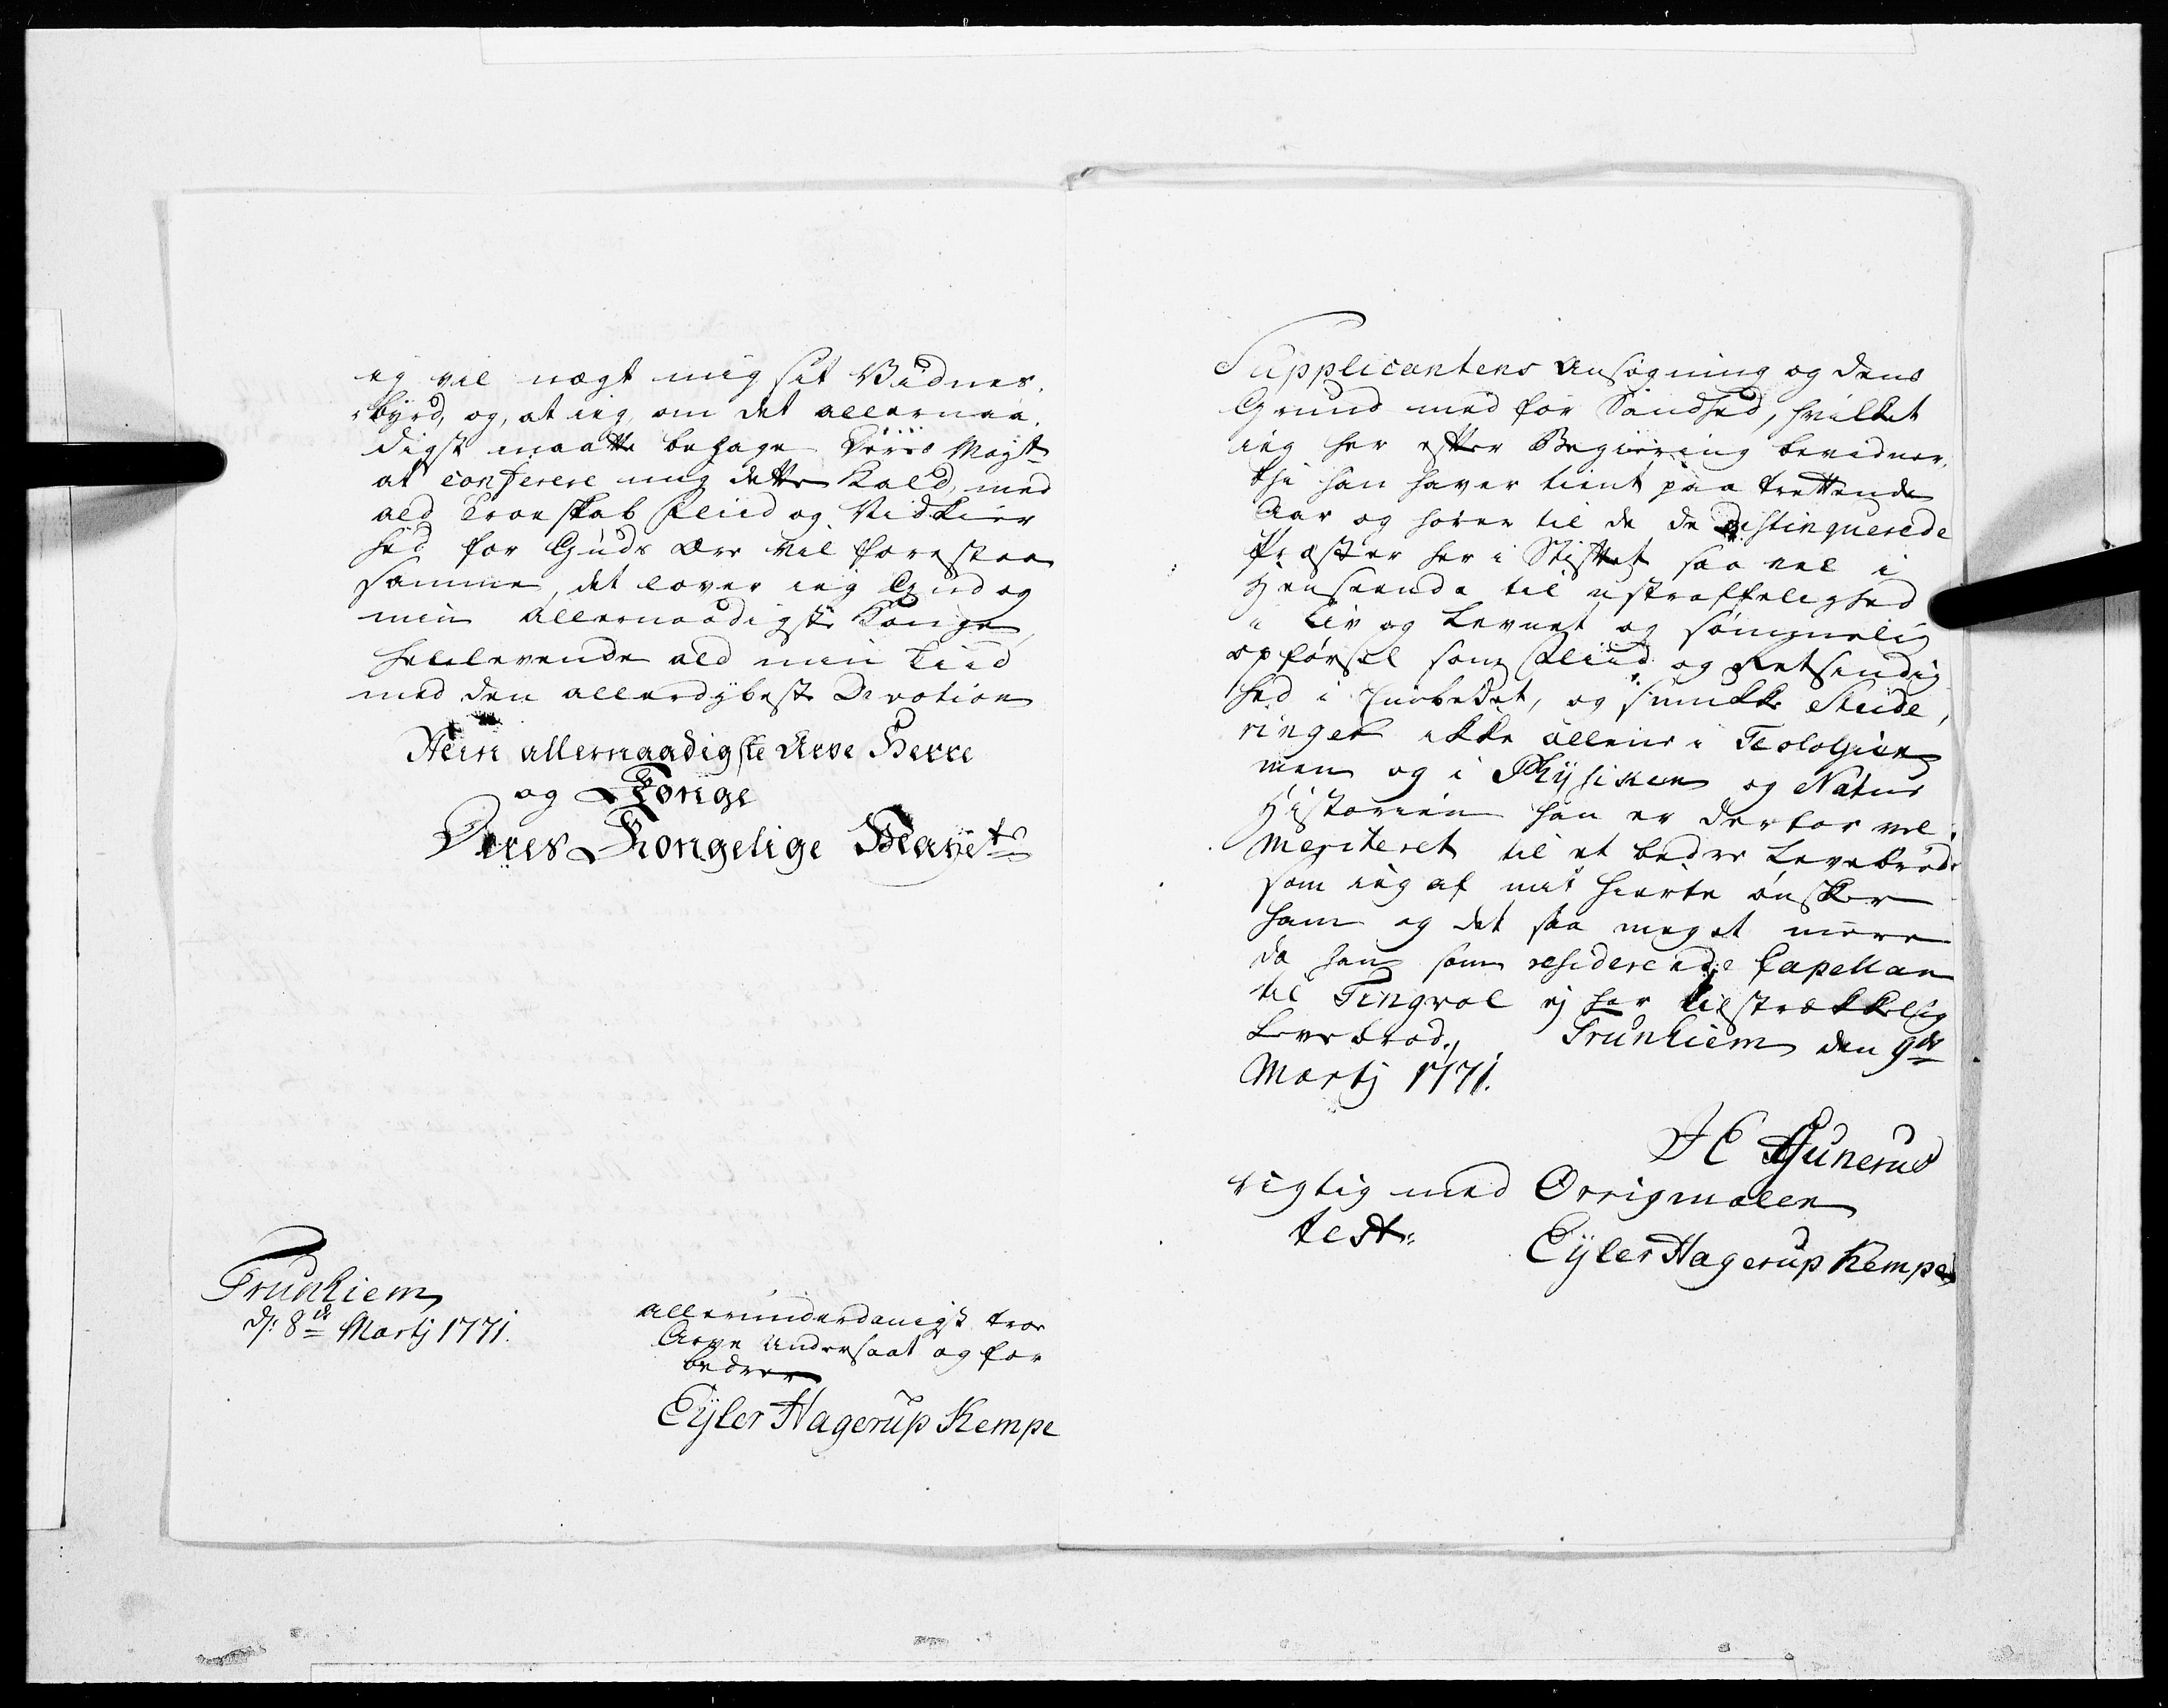 ej vil nægt mig sit Vidnes,
byrd, og, at ieg om det allernaa,
digst maatte behage Deris Mayt
at conferere mig dette Kald, med
ald Troeskab Fliid og Nidkier
hed for Guds Ære vil forestaa
samme, det lover ieg Gud og
min Allernaadigste Konge,
henlevende ald min Tiid
med den allerdybeste Devotion
Min allernaadigste Arve Herre
og Konge
Deres Kongelige Mayets
Trunhiem
d: 8de Martj 1771.
allerunderdanigst troe
Arve Undersaat og for
bedere
Eyler Hagerup Kempe
Supplicantens Ansøgning og dens
Grund med for Sandhed, hvilket
ieg her efter Begiering bevidner,
thi han haver tient paa trettende
Aar og hører til de de distinquerede
Præster her i Stiftet saa vel i
Henseende til ustraffelighed
i Liv og Levnet og sømmelig
opførsel som Fliid og Retsindig
hed i Embedet, og smukke Stude,
ringer ikke alleene i Teologien
men og i Physiken og Natur
Historien han er derfor vel
meriteret til et bedre Levebrød
som ieg af mit Hierte ønsker
ham og det saa meget mere
da han som residerende Capellan
til Tingvol ej har tilstrækkelig
Levebrød, Trunhiem den 9de
Martj 1771.
J E Gunerus
rigtig med Orriginalen
test:
Eyler Hagerup Kempe